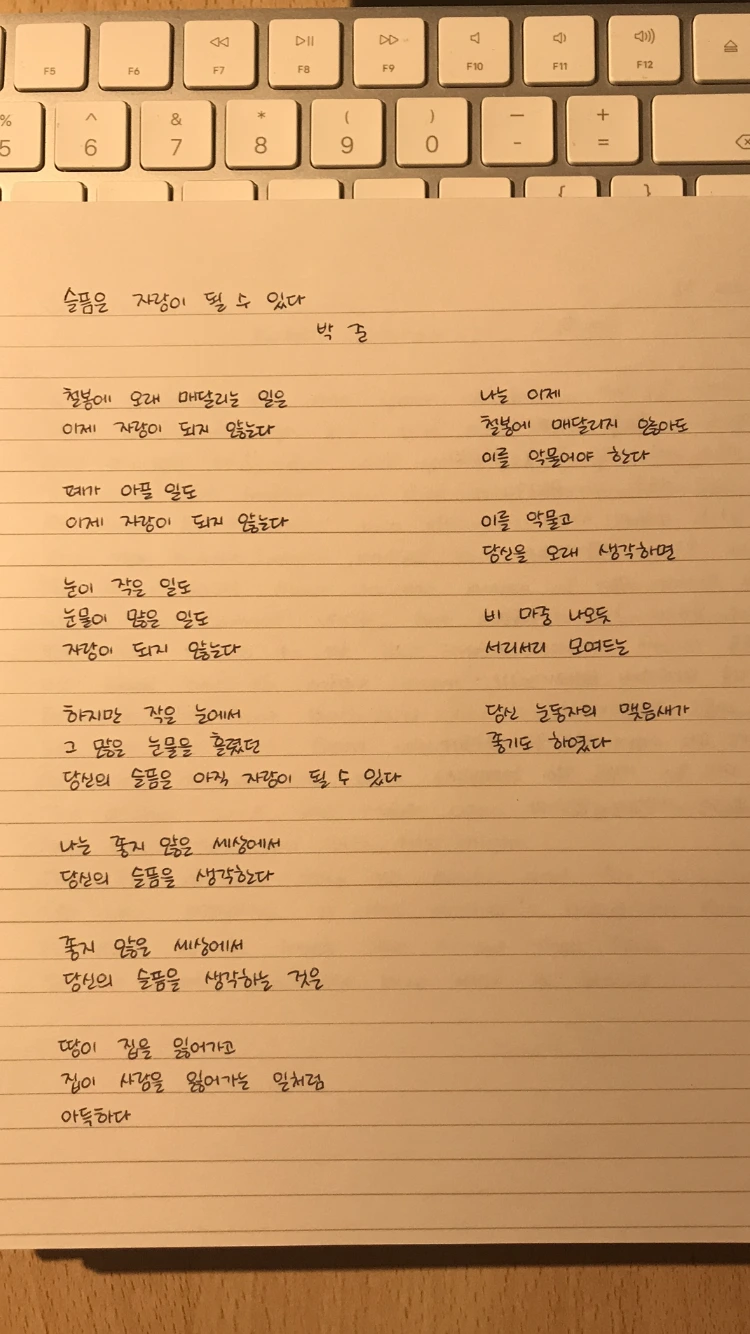 F5 F6 F7 F8 F9 F10 F11 F12
% ^ & * ( ) — +
5 6 7 8 9 0 - =
{ }
슬픔은 자랑이 될 수 있다
박 준
철봉에 오래 매달리는 일은
이제 자랑이 되지 않는다
폐가 아픈 일도
이제 자랑이 되지 않는다
눈이 작은 일도
눈물이 많은 일도
자랑이 되지 않는다
하지만 작은 눈에서
그 많은 눈물을 흘렸던
당신의 슬픔은 아직 자랑이 될 수 있다
나는 좋지 않은 세상에서
당신의 슬픔을 생각한다
좋지 않은 세상에서
당신의 슬픔을 생각하는 것은
땅이 집을 잃어가고
집이 사람을 잃어가는 일처럼
아득하다
나는 이제
철봉에 매달리지 않아도
이를 악물어야 한다
이를 악물고
당신을 오래 생각하면
비 마중 나오듯
서리서리 모여드는
당신 눈동자의 맺음새가
좋기도 하였다